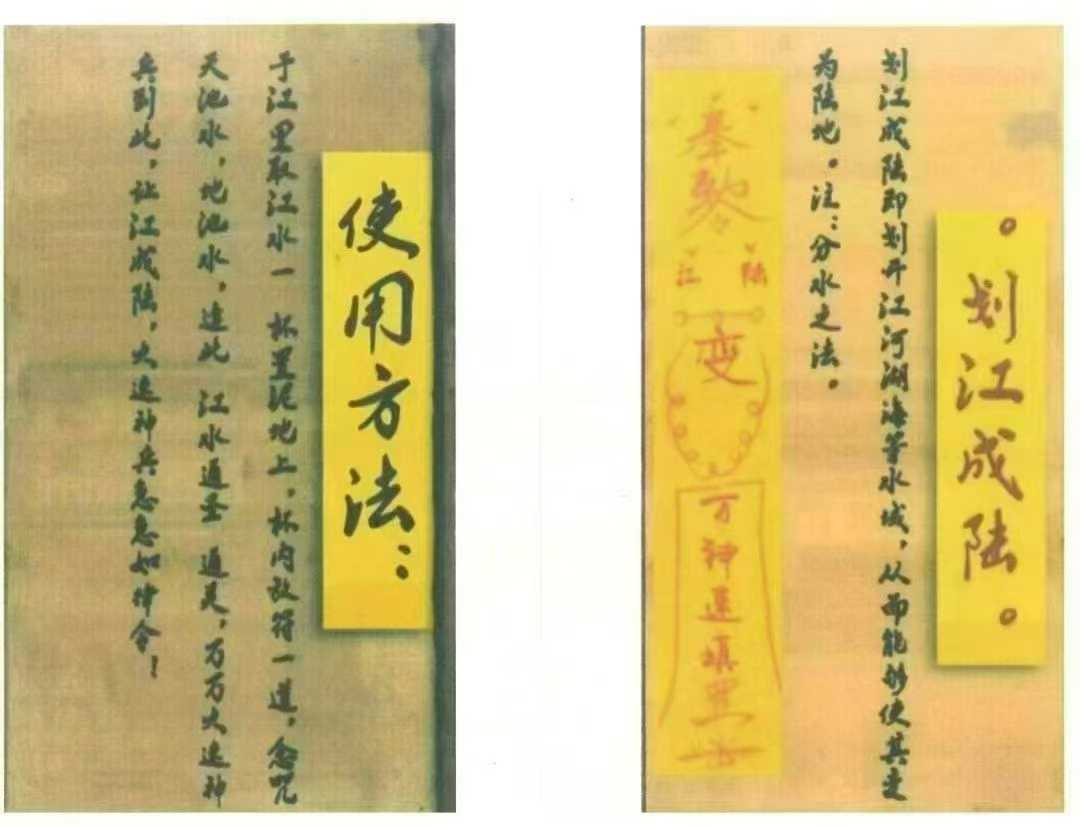 。划江成陆。
划江成陆即划开江河湖海等水域，从而能够使其变
为陆地。注：分水之法。
奉敕
江 陆
变
万神速填罡
使用方法：
于江里取江水一 杯置泥地上，杯内放符一道，念咒
天池水，地池水，速此 江水通圣 通灵，万万火速神
兵到此，让江成陆，火速神兵急急如律令！